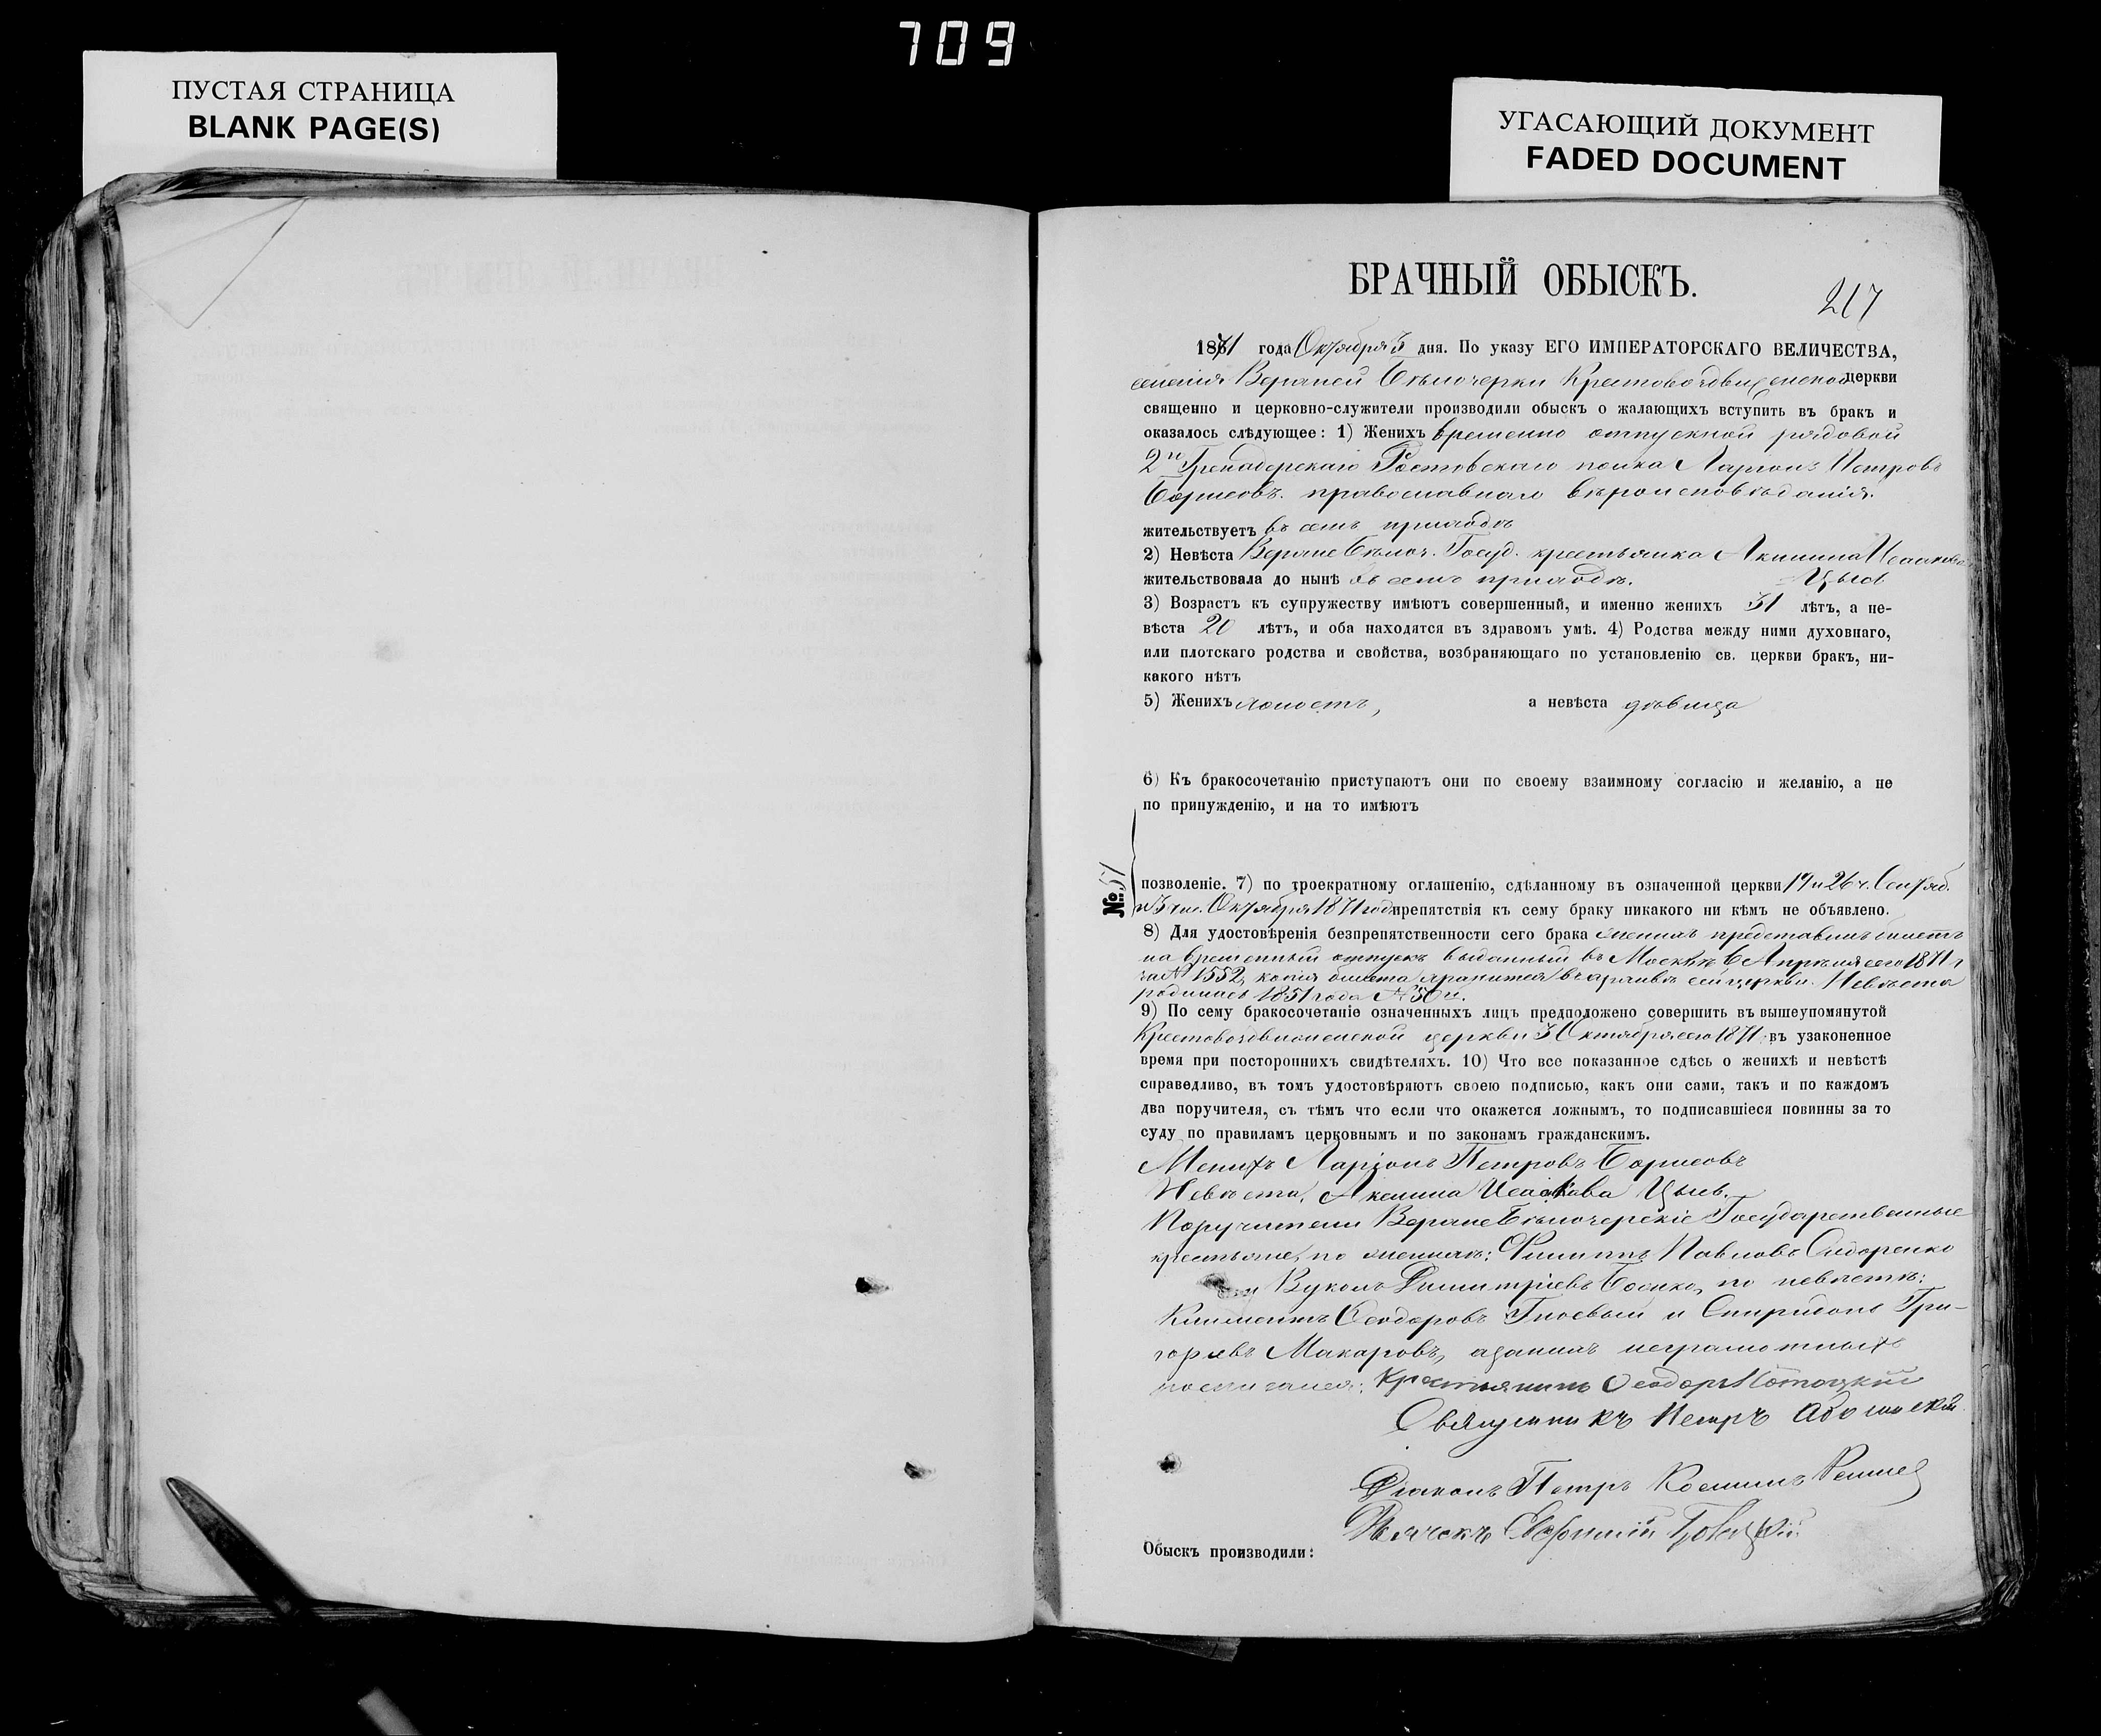 709
ПУСТАЯ СТРАНИЦА
BLANK PAGE(S)
УГАСАЮЩИЙ ДОКУМЕНТ
FADED DOCUMENT
БРАЧНЫЙ ОБЫСКЪ.
217
1871 года Октября 3 дня. По указу ЕГО ИМПЕРАТОРСКАГО ВЕЛИЧЕСТВА,
селенія Верхней Бѣлочерки Крестовоздвиженской церкви
священно и церковно-служители производили обыскъ о жалающихъ вступить въ бракъ и
оказалось слѣдующее: 1) Женихъ временно отпускной рядовой
2го Гренадерскаго Ростовскаго полка Ларіонъ Петровъ
Борисовъ. православнаго вѣроисповѣданія.
жительствуетъ въ семъ приходѣ
2) Невѣста Верхне Бѣлоч. Госуд. крестьянка Акилина Исаакова
жительствовала до нынѣ въ семъ приходѣ. Цысь
3) Возрастъ къ супружеству имѣютъ совершенный, и именно женихъ 31 лѣтъ, а не-
вѣста 20 лѣтъ, и оба находятся въ здравомъ умѣ. 4) Родства между ними духовнаго,
или плотскаго родства и свойства, возбраняющаго по установленію св. церкви бракъ, ни-
какого нѣтъ
5) Женихъ холостъ, а невѣста дѣвица
6) Къ бракосочетанію приступаютъ они по своему взаимному согласію и желанію, а не
по принужденію, и на то имѣютъ
№ 51
позволеніе. 7) по троекратному оглашенію, сдѣланному въ означенной церкви 19 и 26 ч. Сентяб.
и 3 чис. Октября 1871 года препятствія къ сему браку никакого ни кѣмъ не объявлено.
8) Для удостовѣренія безпрепятственности сего брака женихъ представилъ билетъ
на временный отпускъ выданный въ Москвѣ 6 Апрѣля сего 1871 г
за № 1552, копія билета хранится въ архивѣ сей церкви. Невѣста
родилась 1851 года
9) По сему бракосочетаніе означенныхъ лицъ предположено совершить въ вышеупомянутой
Крестовоздвиженской церкви 3 Октября сего 1871 въ узаконенное
время при постороннихъ свидѣтеляхъ. 10) Что все показанное сдѣсь о женихѣ и невѣстѣ
справедливо, въ томъ удостовѣряютъ своею подписью, какъ они сами, такъ и по каждомъ
два поручителя, съ тѣмъ что если что окажется ложнымъ, то подписавшіеся повинны за то
суду по правиламъ церковнымъ и по законамъ гражданскимъ.
Женихъ Ларіонъ Петровъ Борисовъ
Невѣста, Акилина Исаакова Цысь.
Поручители Верхне Бѣлочерскіе Государственные
крестьяне, по женихѣ: Филиппъ Павловъ Сидоренко
и Вуколъ Димитріевъ Бойко, по невѣстѣ:
Климентъ Ѳеодоровъ Гноевый и Спиридонъ Гри-
горьевъ Макаровъ, а за нихъ неграмотныхъ
росписался: Крестьянинъ Ѳеодоръ Потоцкій
Священникъ Петръ
Діаконъ Петръ Косминъ
Дьячекъ
Обыскъ производили: